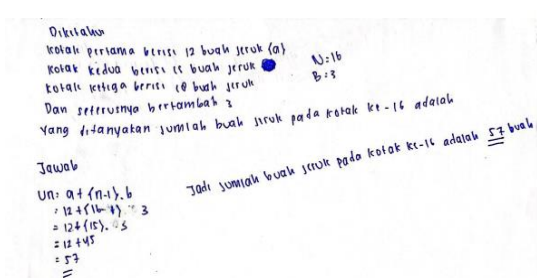 Diketahui
Kotak pertama berisi 12 buah jeruk {a}
Kotak kedua berisi 15 buah jeruk
N = 16
Kotak ketiga berisi 18 buah jeruk
B = 3
Dan seterusnya bertambah 3
Yang ditanyakan jumlah buah jeruk pada kotak ke-16 adalah
Jawab
Un = a + {n-1}. b
= 12 + {16-1} . 3
= 12 + {15} . 3
= 12 + 45
= 57
Jadi jumlah buah jeruk pada kotak ke-16 adalah 57 buah